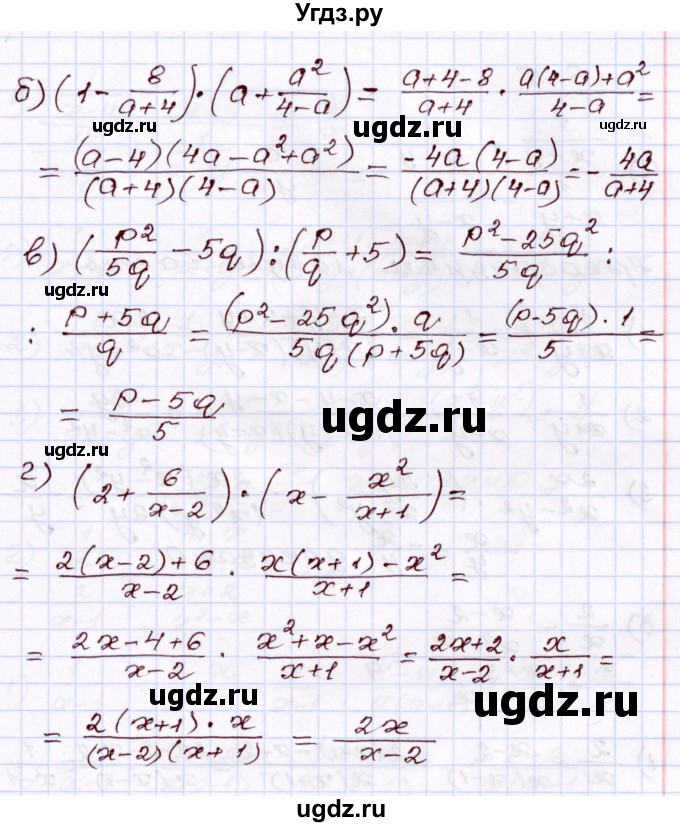 Угдз.ру
б) (1 - 8/(a+4)) · (a + a²/(4-a)) = (a+4-8)/(a+4) · (a(4-a)+a²)/(4-a) =
ugdz.ru ugdz.ru ugdz.ru
= ((a-4)(4a-a²+a²))/((a+4)(4-a)) = (-4a(4-a))/((a+4)(4-a)) = - 4a/(a+4)
в) (p²/5q - 5q) : (p/q + 5) = (p²-25q²)/5q :
ugdz.ru
: (p+5q)/q = ((p²-25q²)·q)/(5q(p+5q)) = ((p-5q)·1)/5 =
= (p-5q)/5
ugdz.ru ugdz.ru
г) (2 + 6/(x-2)) · (x - x²/(x+1)) =
= (2(x-2)+6)/(x-2) · (x(x+1)-x²)/(x+1) =
= (2x-4+6)/(x-2) · (x²+x-x²)/(x+1) = (2x+2)/(x-2) · x/(x+1) =
ugdz.ru ugdz.ru
= (2(x+1)·x)/((x-2)(x+1)) = 2x/(x-2)
ugdz.ru